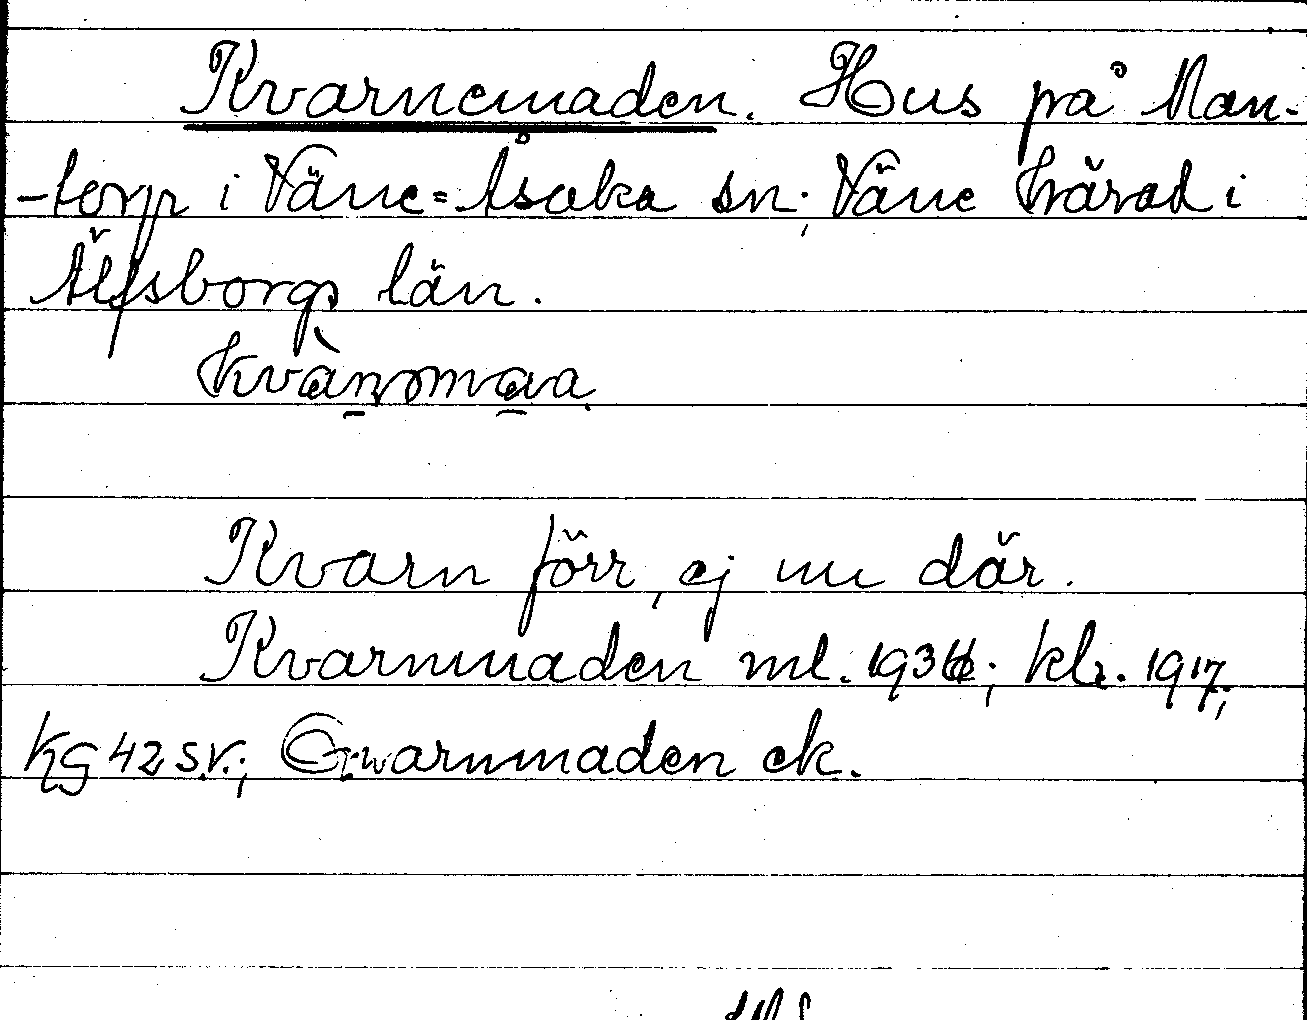 Kvarnemaden. Hus på Man-
-torp i Väne=Åsaka sn; Väne härad i
Älfsborgs län.
kvànnmaa.
Kvarn förr, ej nu där.
Kvarnmaden ml. 1934; kls. 1917;
KG 42 SV.; Qwarnmaden ek.